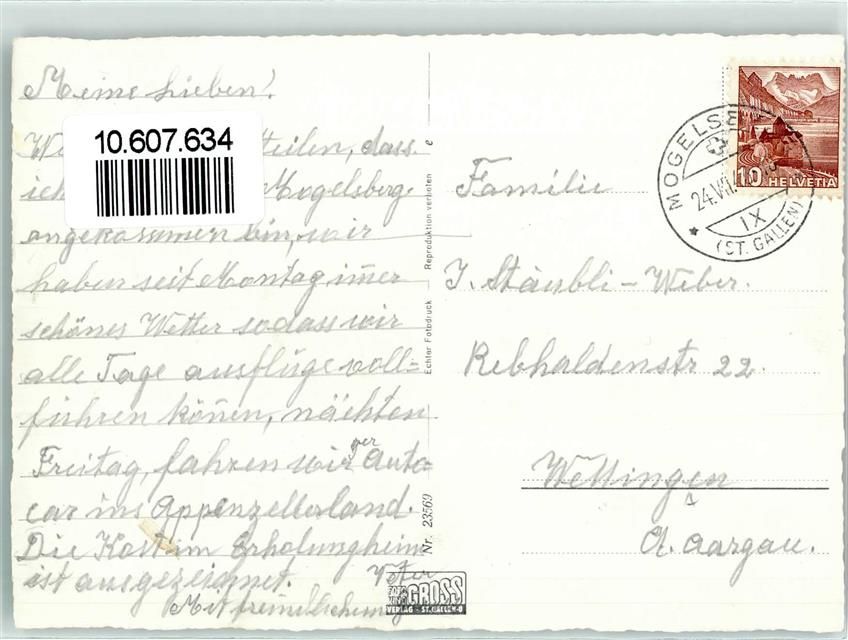 Meine Lieben!
10.607.634
teilen, dass
ich Mogelsberg
angekommen bin, wir
haben seit Montag imer
schönes Wetter sodass wir
alle Tage ausflüge voll=
führen könen, nächten
Freitag, fahren wir per Auto=
car ins Appenzellerland.
Die Kost im Erholungheim
ist ausgezeichnet.
Mit freundlichem
Echter Fotodruck Reproduktion verboten
Nr. 23569
FOTO GROSS
VERLAG - ST. GALLEN-O
MOGELSB
24.VII
IX
(ST. GALLEN)
10 HELVETIA
Familie
J. Stäubli - Weber.
Rebhaldenstr 22.
Wettingen
Ct. Aargau.